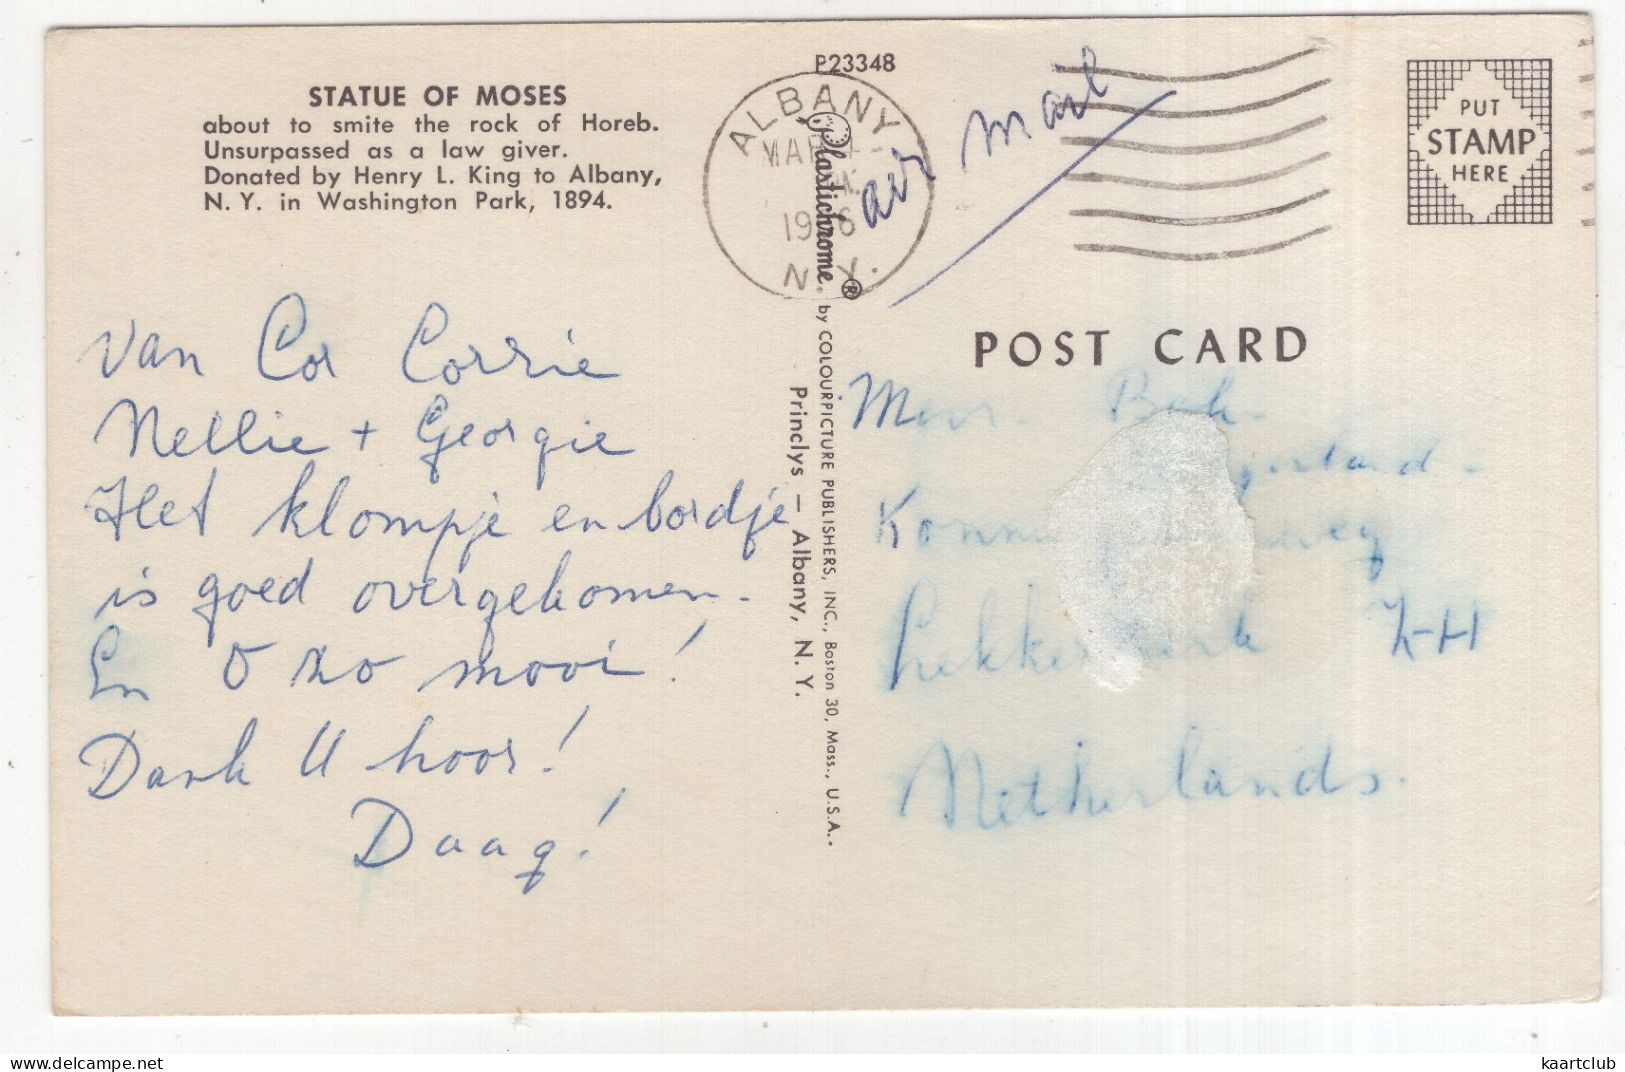 STATUE OF MOSES
about to smite the rock of Horeb.
Unsurpassed as a law giver.
Donated by Henry L. King to Albany,
N. Y. in Washington Park, 1894.
van Cor Corrie
Nellie + Georgie
Het klompje en bordje
is goed overgekomen.
En O zo mooi!
Dank U hoor!
Daag!
P23348
Plastichrome ® by COLOURPICTURE PUBLISHERS, INC., Boston 30, Mass., U.S.A.
Princlys — Albany, N. Y.
ALBANY
MAR
N.Y.
air mail
PUT
STAMP
HERE
POST CARD
Z-H
Netherlands.
delcampe.net
kaartclub